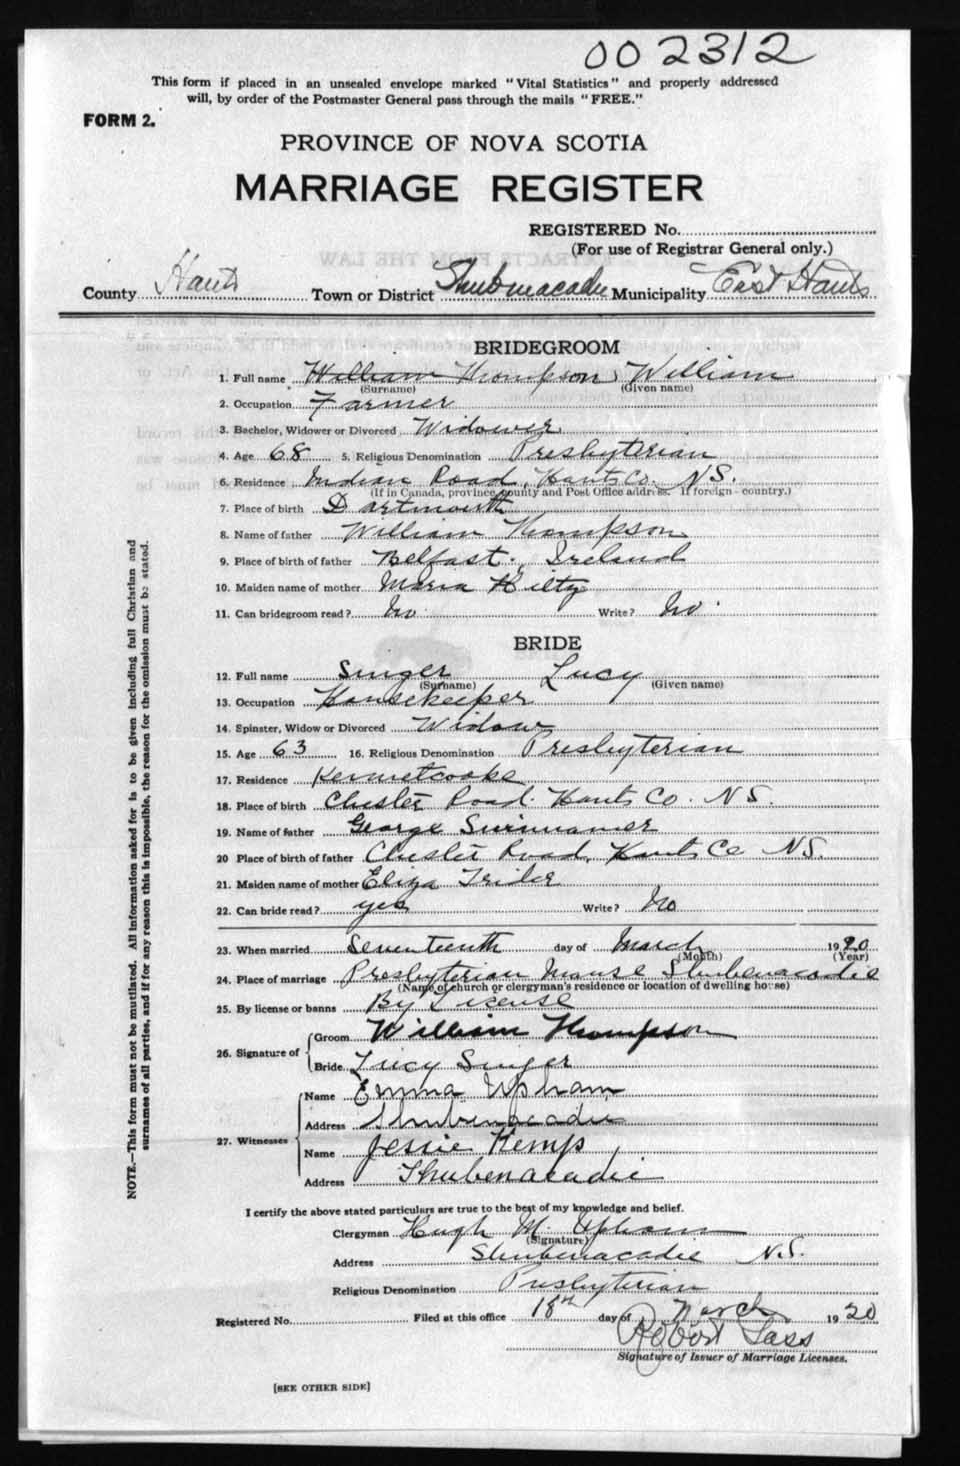 002312
This form if placed in an unsealed envelope marked "Vital Statistics" and properly addressed
will, by order of the Postmaster General pass through the mails "FREE."
FORM 2.
PROVINCE OF NOVA SCOTIA
MARRIAGE REGISTER
REGISTERED No.
(For use of Registrar General only.)
County Hants Town or District Shubenacadie Municipality East Hants
BRIDEGROOM
1. Full name William Thompson, William
(Surname) (Given name)
2. Occupation Farmer
3. Bachelor, Widower or Divorced Widower
4. Age 68 5. Religious Denomination Presbyterian
6. Residence Indian Road, Hants Co. N.S.
(If in Canada, province, county and Post Office address. If foreign - country.)
7. Place of birth Dartmouth
8. Name of father William Thompson
9. Place of birth of father Belfast, Ireland
10. Maiden name of mother Maria Hilty
11. Can bridegroom read? No Write? No
BRIDE
12. Full name Singer Lucy
(Surname) (Given name)
13. Occupation Housekeeper
14. Spinster, Widow or Divorced Widow
15. Age 63 16. Religious Denomination Presbyterian
17. Residence Kennetcooke
18. Place of birth Chester Road. Hants Co. N.S.
19. Name of father George Surnnamer
20 Place of birth of father Chester Road, Hants Co N.S.
21. Maiden name of mother Eliza Trider
22. Can bride read? yes Write? No
23. When married Seventeenth day of March 1920
(Month) (Year)
24. Place of marriage Presbyterian Manse Shubenacadie
(Name of church or clergyman's residence or location of dwelling house)
25. By license or banns By License
26. Signature of
Groom William Thompson
Bride Lucy Singer
27. Witnesses
Name Emma Upham
Address Shubenacadie
Name Jessie Kemp
Address Shubenacadie
I certify the above stated particulars are true to the best of my knowledge and belief.
Clergyman Hugh M. Upham
(Signature)
Address Shubenacadie N.S.
Religious Denomination Presbyterian
Registered No. Filed at this office 18th day of March 1920
Robert Lass
Signature of Issuer of Marriage Licenses.
[SEE OTHER SIDE]
NOTE.—This form must not be mutilated. All information asked for is to be given including full Christian and
surnames of all parties, and if for any reason this is impossible, the reason for the omission must be stated.